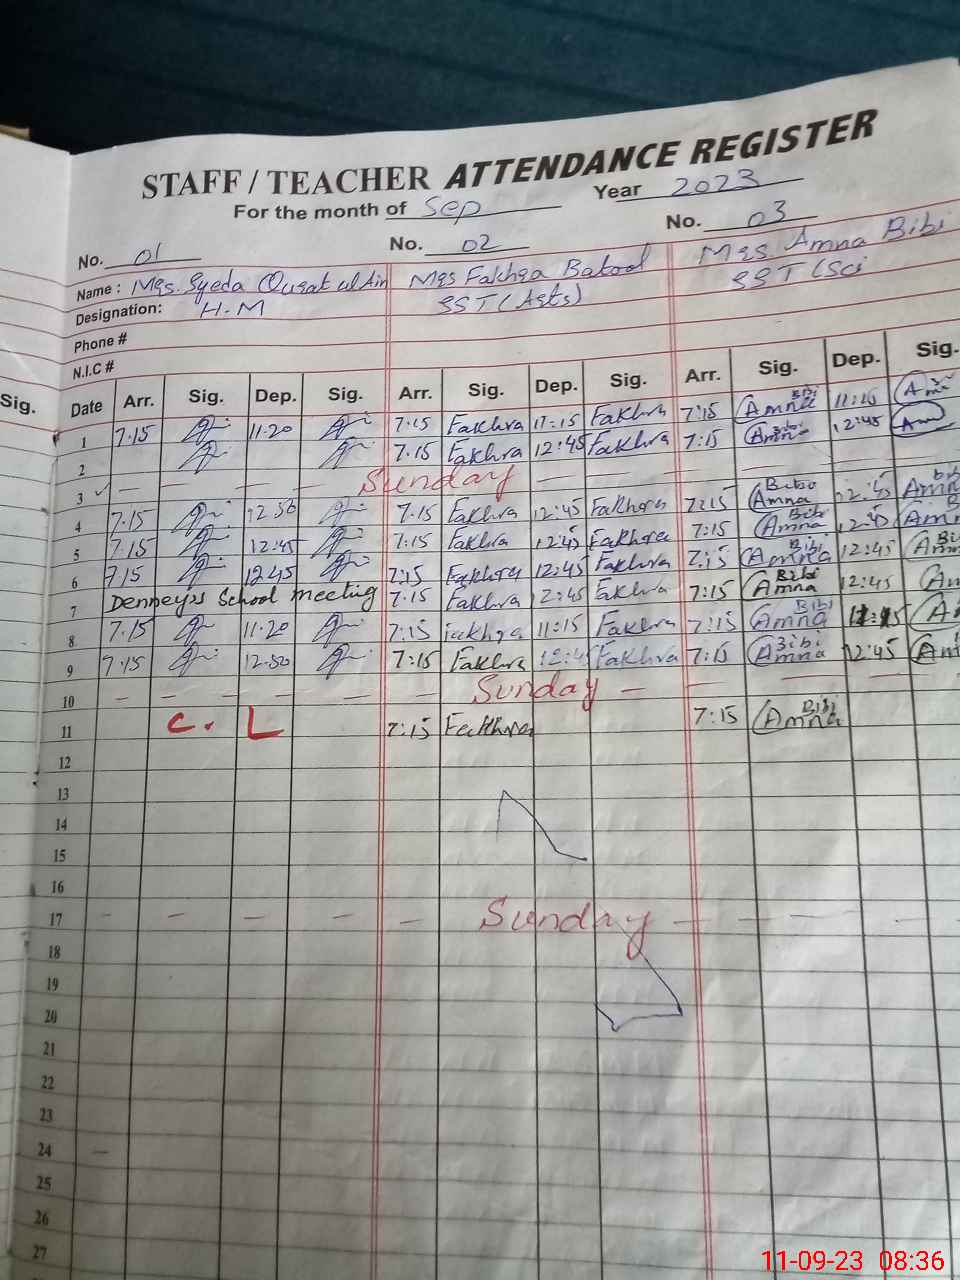 STAFF / TEACHER ATTENDANCE REGISTER
For the month of Sep Year 2023
No. 01 No. 02 No. 03
Name : Mrs. Syeda Qurat ul Ain Mrs Fakhra Batool Mrs. Amna Bibi
Designation: H.M SST (Arts) SST (Sci
Phone #
N.I.C #
Sig. Date Arr. Sig. Dep. Sig. Arr. Sig. Dep. Sig. Arr. Sig. Dep. Sig.
1 7.15 11.20 7.15 Fakhra 11:15 Fakhra 7:15 Amna Bibi 11:15
2 7.15 Fakhra 12:45 Fakhra 7:15 Amna Bibi 12:45
3 Sunday
4 7.15 12.50 7.15 Fakhra 12:45 Fakhra 7:15 Amna Bibi 12:45 Amna
5 7.15 12:45 7:15 Fakhra 12:45 Fakhra 7:15 Amna Bibi 12:45
6 7.15 12.45 7:15 Fakhra 12:45 Fakhra 7:15 Amna Bibi 12:45
7 School meeting 7:15 Fakhra 12:45 Fakhra 7:15 Amna Bibi 12:45
8 7.15 11.20 7:15 Fakhra 11:15 Fakhra 7:15 Amna Bibi
9 7.15 12.50 7:15 Fakhra 12:45 Fakhra 7:15 Amna Bibi 12:45
10 Sunday
11 C. L 7:15 Fakhra 7:15 Amna Bibi
12
13
14
15
16
17 Sunday
18
19
20
21
22
23
24
25
26
27
11-09-23 08:36